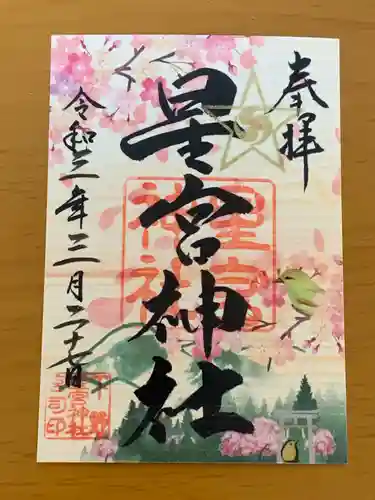 奉拝
星宮神社
星宮
神社
令和三年三月二十七日
下野
星宮神社
宮司印